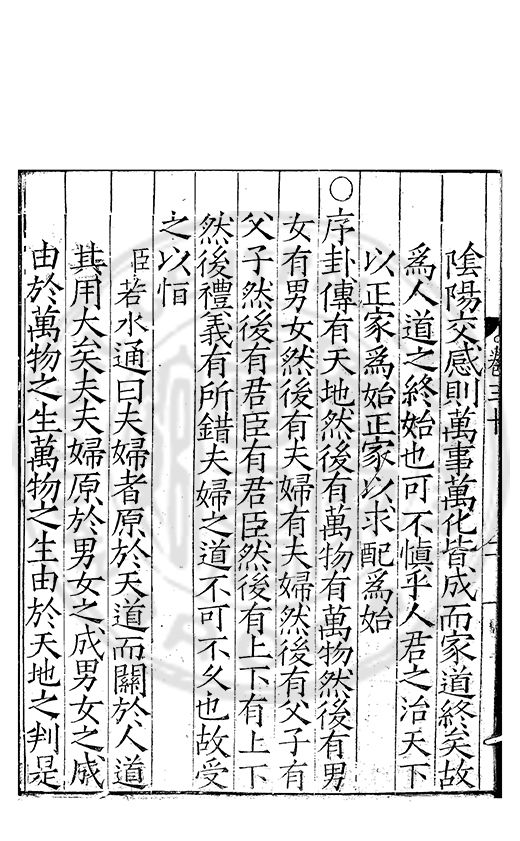 陰陽交感則萬事萬化皆成而家道終矣故
為人道之終始也可不慎乎人君之治天下
以正家為始正家以求配為始
○序卦傳有天地然後有萬物有萬物然後有男
女有男女然後有夫婦有夫婦然後有父子有
父子然後有君臣有君臣然後有上下有上下
然後禮義有所錯夫婦之道不可不久也故受
之以恒
臣若水通曰夫婦者原於天道而關於人道
其用大矣夫夫婦原於男女之成男女之成
由於萬物之生萬物之生由於天地之判是
卷三十